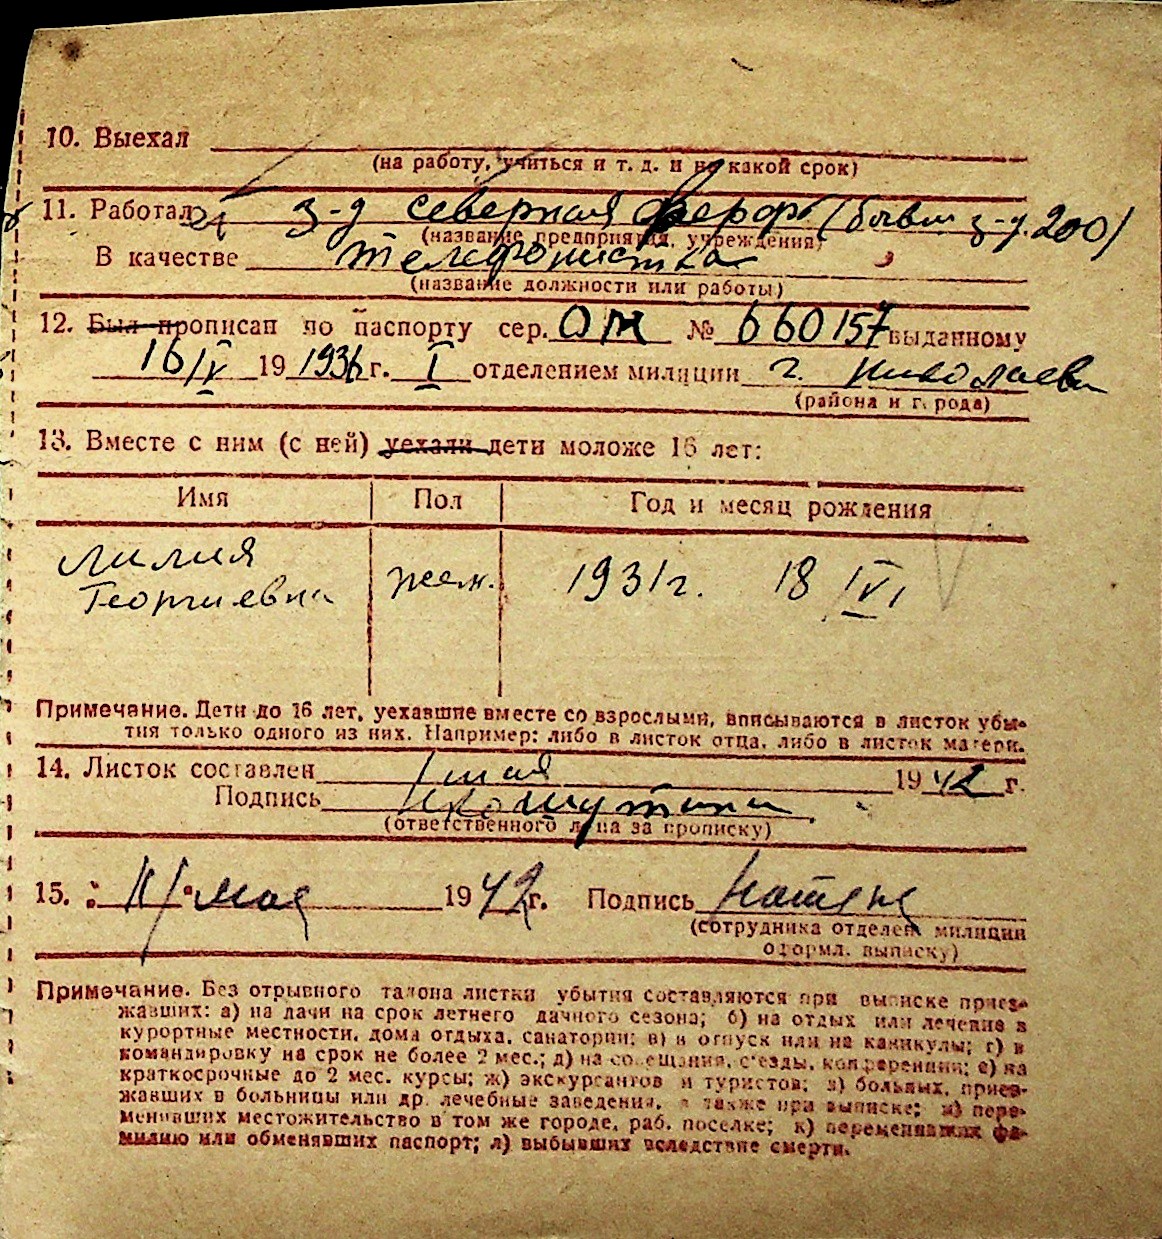 10. Выехал
(на работу, учиться и т. д. и на какой срок)
11. Работал з-д северная (бывш з-д. 200)
(название предприятия, учреждения)
В качестве телефонистка
(название должности или работы)
12. Был прописан по паспорту сер. ОМ № 660157 выданному
16/V 19 1936 г. I отделением милиции г. Николаева
(района и города)
13. Вместе с ним (с ней) уехали дети моложе 16 лет:
Имя Пол Год и месяц рождения
Лилия
Георгиевна жен. 1931 г. 18 IV
Примечание. Дети до 16 лет, уехавшие вместе со взрослыми, вписываются в листок убы-
тия только одного из них. Например: либо в листок отца, либо в листок матери.
14. Листок составлен 1 мая 1942 г.
Подпись
(ответственного лица за прописку)
15. 11/ мая 1942 г. Подпись
(сотрудника отделен. милиции
оформл. выписку)
Примечание. Без отрывного талона листки убытия составляются при выписке приез-
жавших: а) на дачи на срок летнего дачного сезона; б) на отдых или лечение в
курортные местности, дома отдыха, санатории; в) в отпуск или на каникулы; г) в
командировку на срок не более 2 мес.; д) на совещания, с'езды, конференции; е) на
краткосрочные до 2 мес. курсы; ж) экскурсантов и туристов; з) больных, приез-
жавших в больницы или др. лечебные заведения, а также при выписке; и) пере-
менивших местожительство в том же городе, раб. поселке; к) переменивших фа-
милию или обменявших паспорт; л) выбывших вследствие смерти.